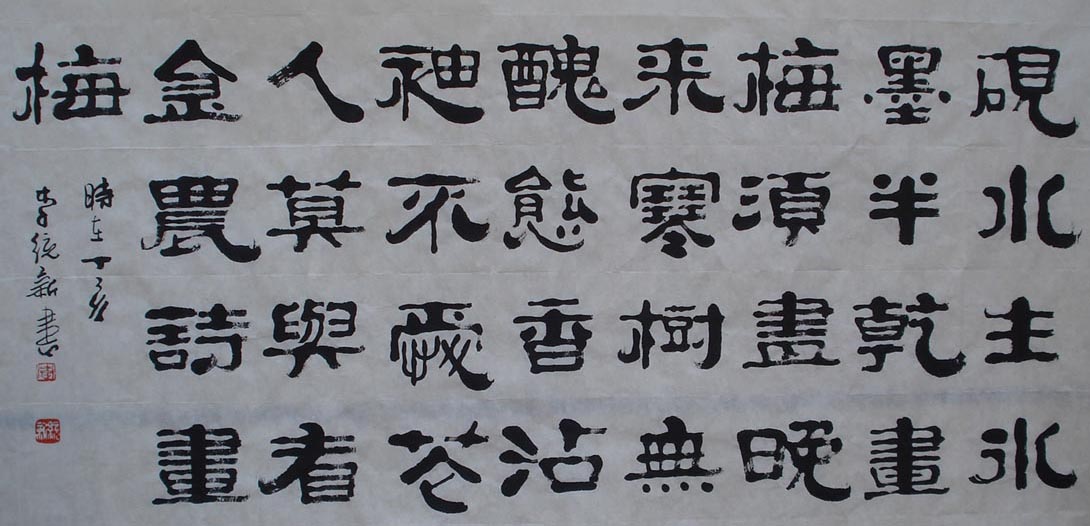 硯水生冰
墨半乾畫
梅須畫晚
來寒樹無
醜態香沾
袖不愛花
人莫與看
金農詩畫
梅
時在丁亥
李統新書